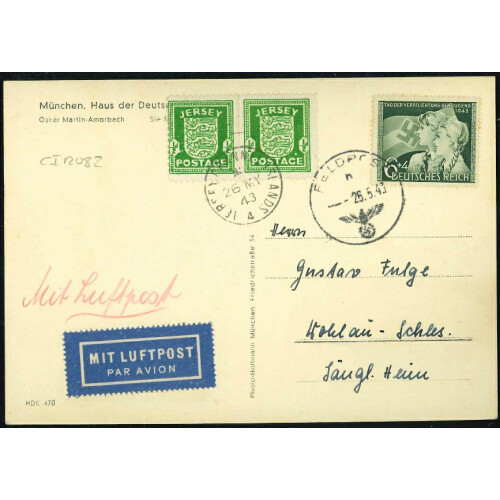 München. Haus der Deutsc
Oskar Martin-Amorbach
CI 12082
JERSEY
POSTAGE
JERSEY
POSTAGE
26 MY
43
TAG DER VERPFLICHTUNG DER JUGEND
1943
6+4
DEUTSCHES REICH
FELDPOST
- 26.5.43
Herrn
Gustav Fulge
Wohlau-Schles.
Sängl. Heim
Mit Luftpost
MIT LUFTPOST
PAR AVION
HDK 470
Photo-Hoffmann München, Friedrichstraße 34